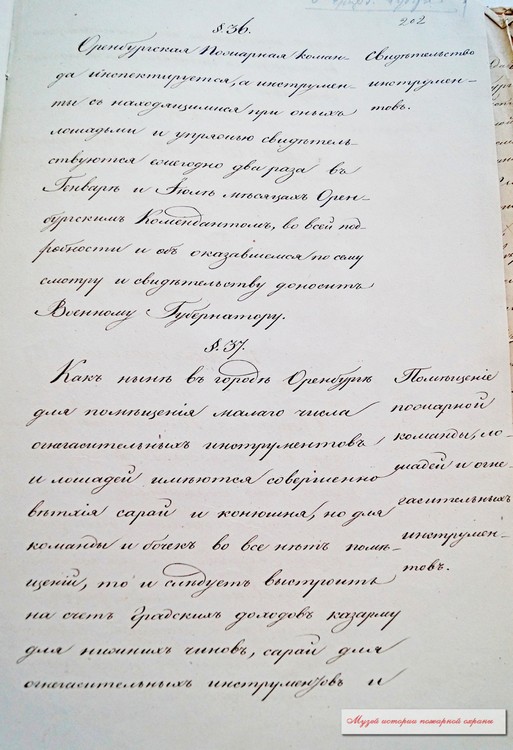 202
§. 36.
Оренбургская Пожарная коман-
да инспектируется, а инструмен-
ты съ находящимися при оныхъ
лошадьми и упряжью свидѣтель-
ствуются ежегодно два раза въ
Генварѣ и Іюлѣ мѣсяцахъ Орен-
бургскимъ Комендантомъ, во всей под-
робности и объ оказавшемся по сему
смотру и свидѣтельству доноситъ
Военному Губернатору.
Свидѣтельство
инструмен-
товъ.
§. 37.
Какъ нынѣ въ городѣ Оренбургѣ
для помѣщенія малаго числа
огнегасительныхъ инструментовъ
и лошадей имѣются совершенно
вѣтхія сарай и конюшня, но для
команды и бочекъ во все нѣтъ помѣ-
щеній, то и слѣдуетъ выстроить
на счетъ Градскихъ доходовъ казарму
для нижнихъ чиновъ, сарай для
огнегасительныхъ инструментовъ и
Помѣщеніе
пожарной
команды, ло-
шадей и огне-
гасительныхъ
инструмен-
товъ.
Музей истории пожарной охраны